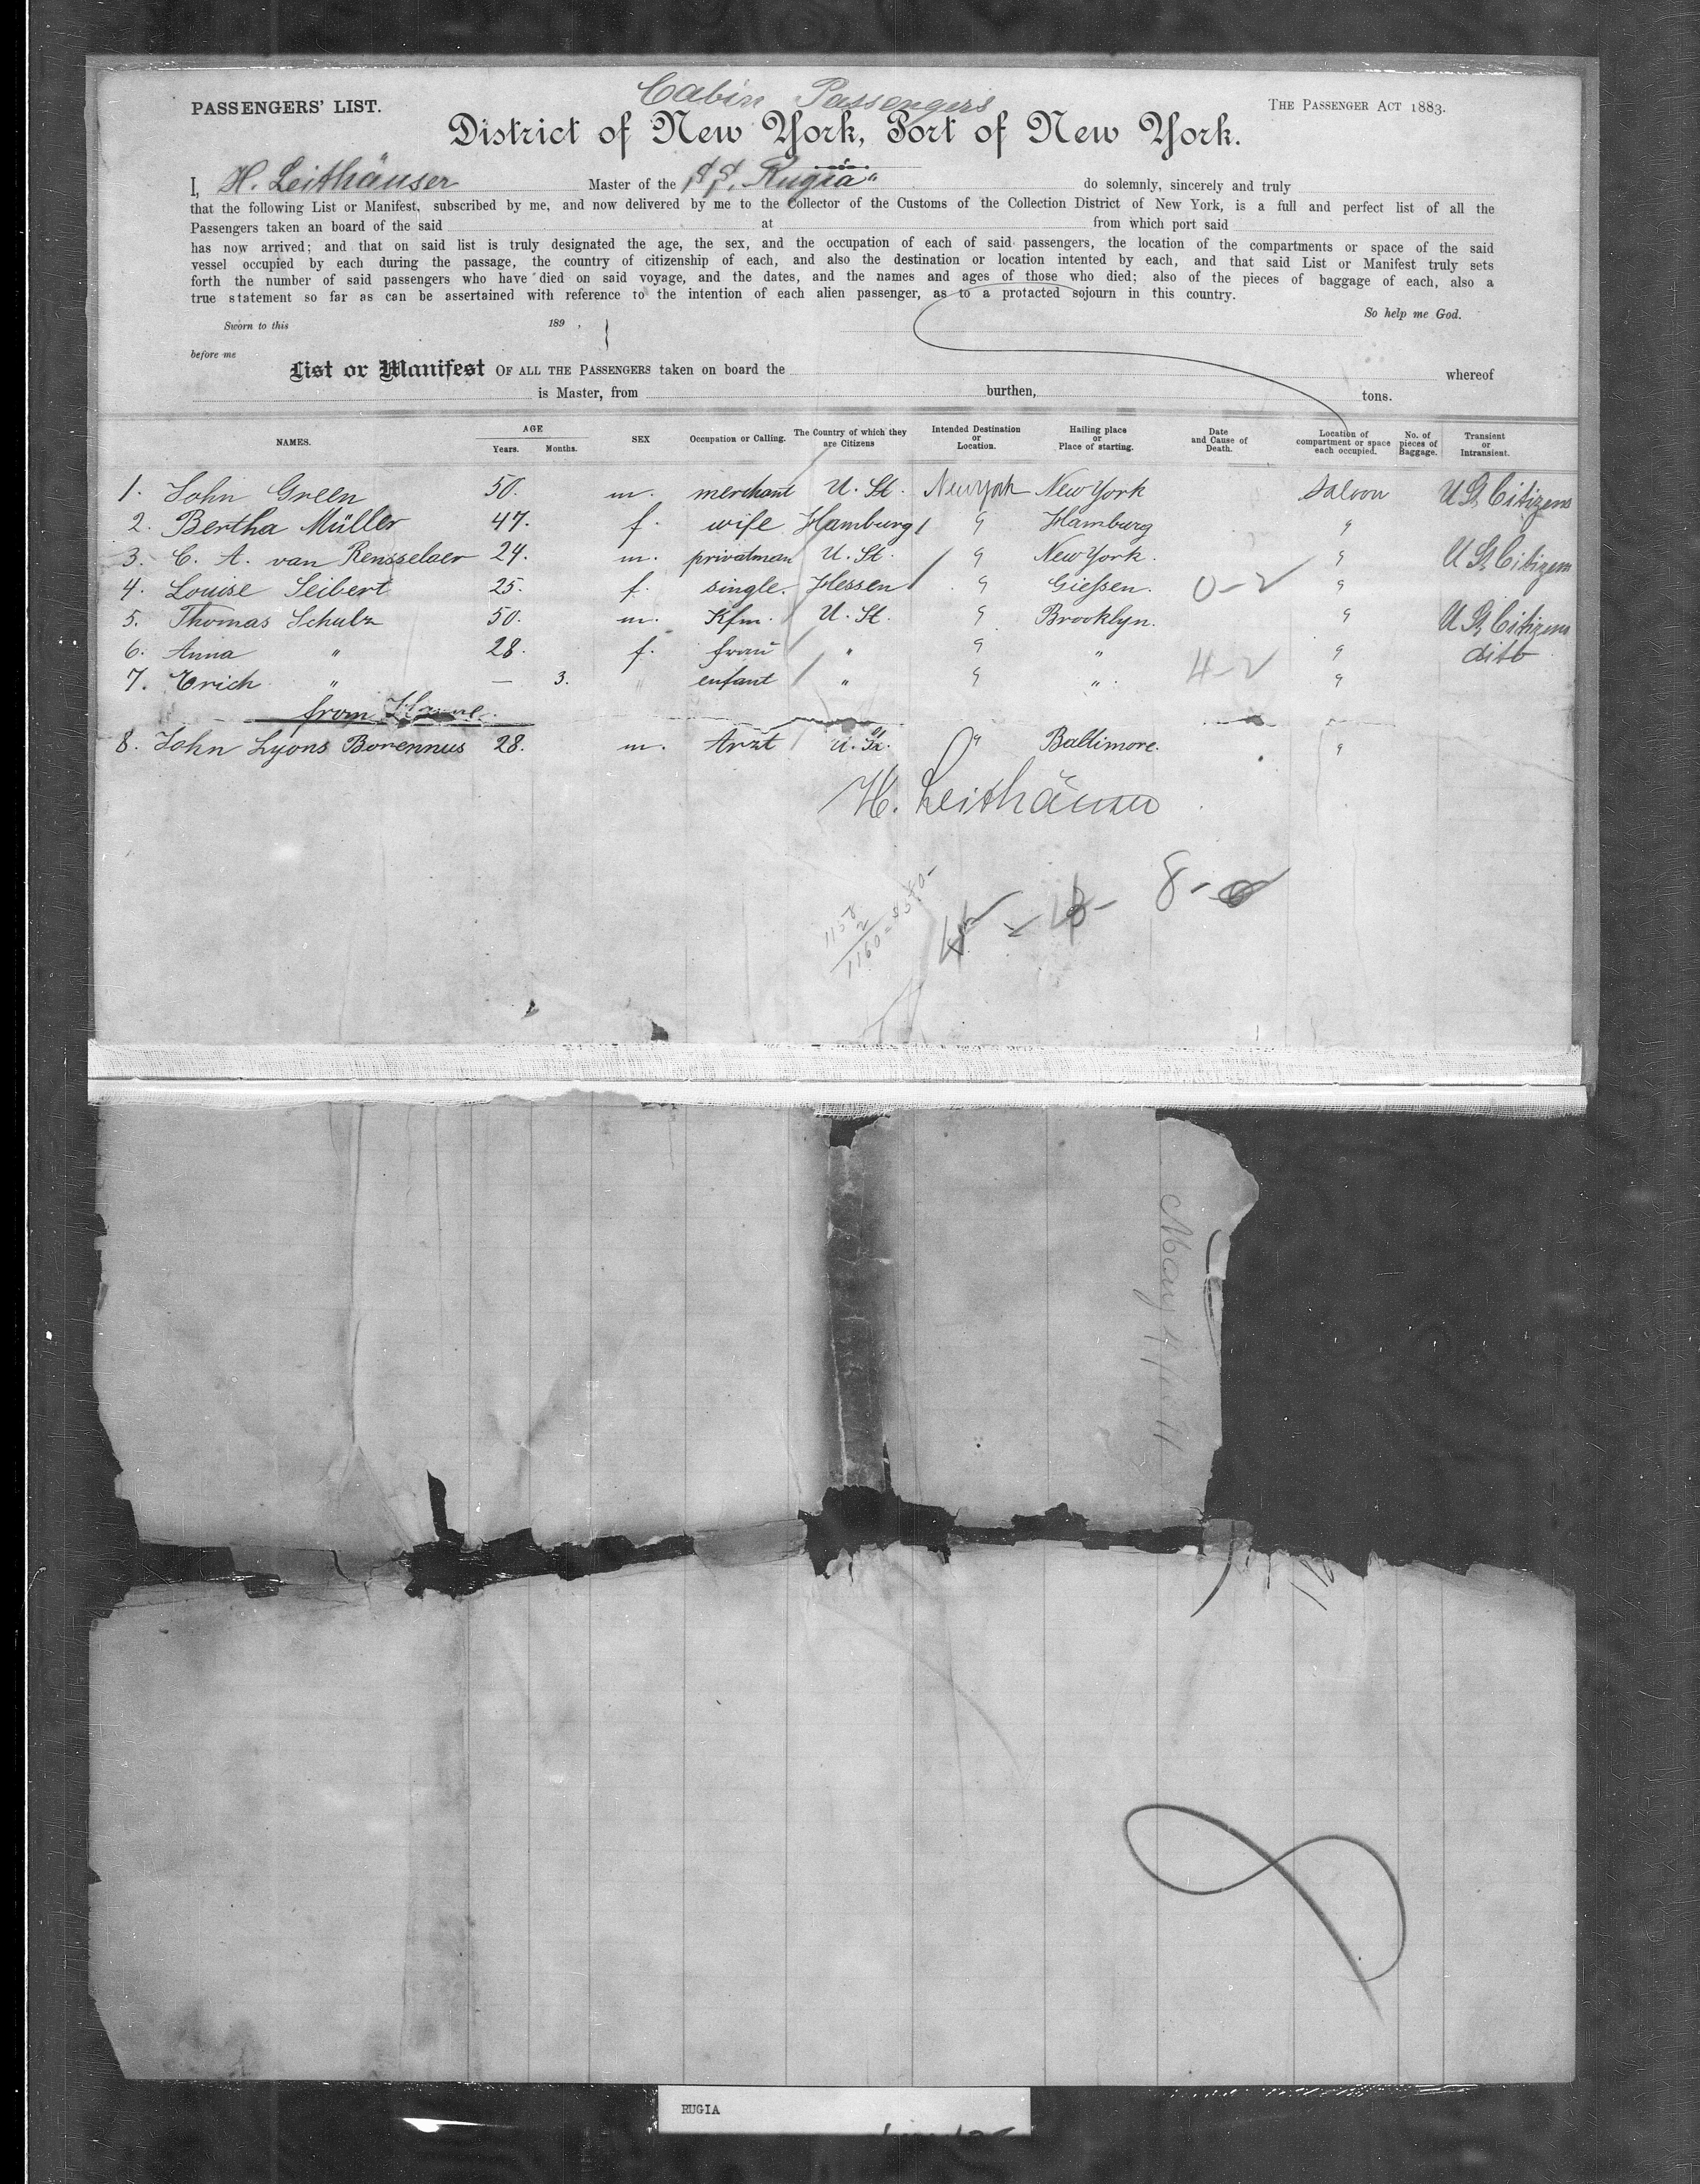 Cabin Passengers
PASSENGERS' LIST.
THE PASSENGER ACT 1883.
District of New York, Port of New York.
I, H. Leithäuser Master of the S/S. "Rugia" do solemnly, sincerely and truly
that the following List or Manifest, subscribed by me, and now delivered by me to the Collector of the Customs of the Collection District of New York, is a full and perfect list of all the
Passengers taken an board of the said at from which port said
has now arrived; and that on said list is truly designated the age, the sex, and the occupation of each of said passengers, the location of the compartments or space of the said
vessel occupied by each during the passage, the country of citizenship of each, and also the destination or location intented by each, and that said List or Manifest truly sets
forth the number of said passengers who have died on said voyage, and the dates, and the names and ages of those who died; also of the pieces of baggage of each, also a
true statement so far as can be assertained with reference to the intention of each alien passenger, as to a protacted sojourn in this country.
So help me God.
Sworn to this 189 .
before me
List or Manifest OF ALL THE PASSENGERS taken on board the whereof
is Master, from burthen, tons.
NAMES. AGE Years. Months. SEX Occupation or Calling. The Country of which they are Citizens Intended Destination or Location. Hailing place or Place of starting. Date and Cause of Death. Location of compartment or space each occupied. No. of pieces of Baggage. Transient or Intransient.
1. John Green 50. m. merchant U. St. New York New York Saloon U St. Citizens
2. Bertha Müller 47. f. wife Hamburg " Hamburg "
3. C. A. van Rensselaer 24. m. privatman U. St. " New York. " U St. Citizen
4. Louise Seibert 25. f. single. Hessen " Giessen. 0-2 "
5. Thomas Schulz 50. m. Kfm. U. St. " Brooklyn. " U St. Citizens
6. Anna " 28. f. frau " " " " dito
7. Erich " — 3. " enfant " " " 4-2 "
from Havre.
8. John Lyons 28. m. Arzt U. St. " Baltimore. "
H. Leithäuser
8-0
1158
2
1160 = $580-
May
91
8
RUGIA